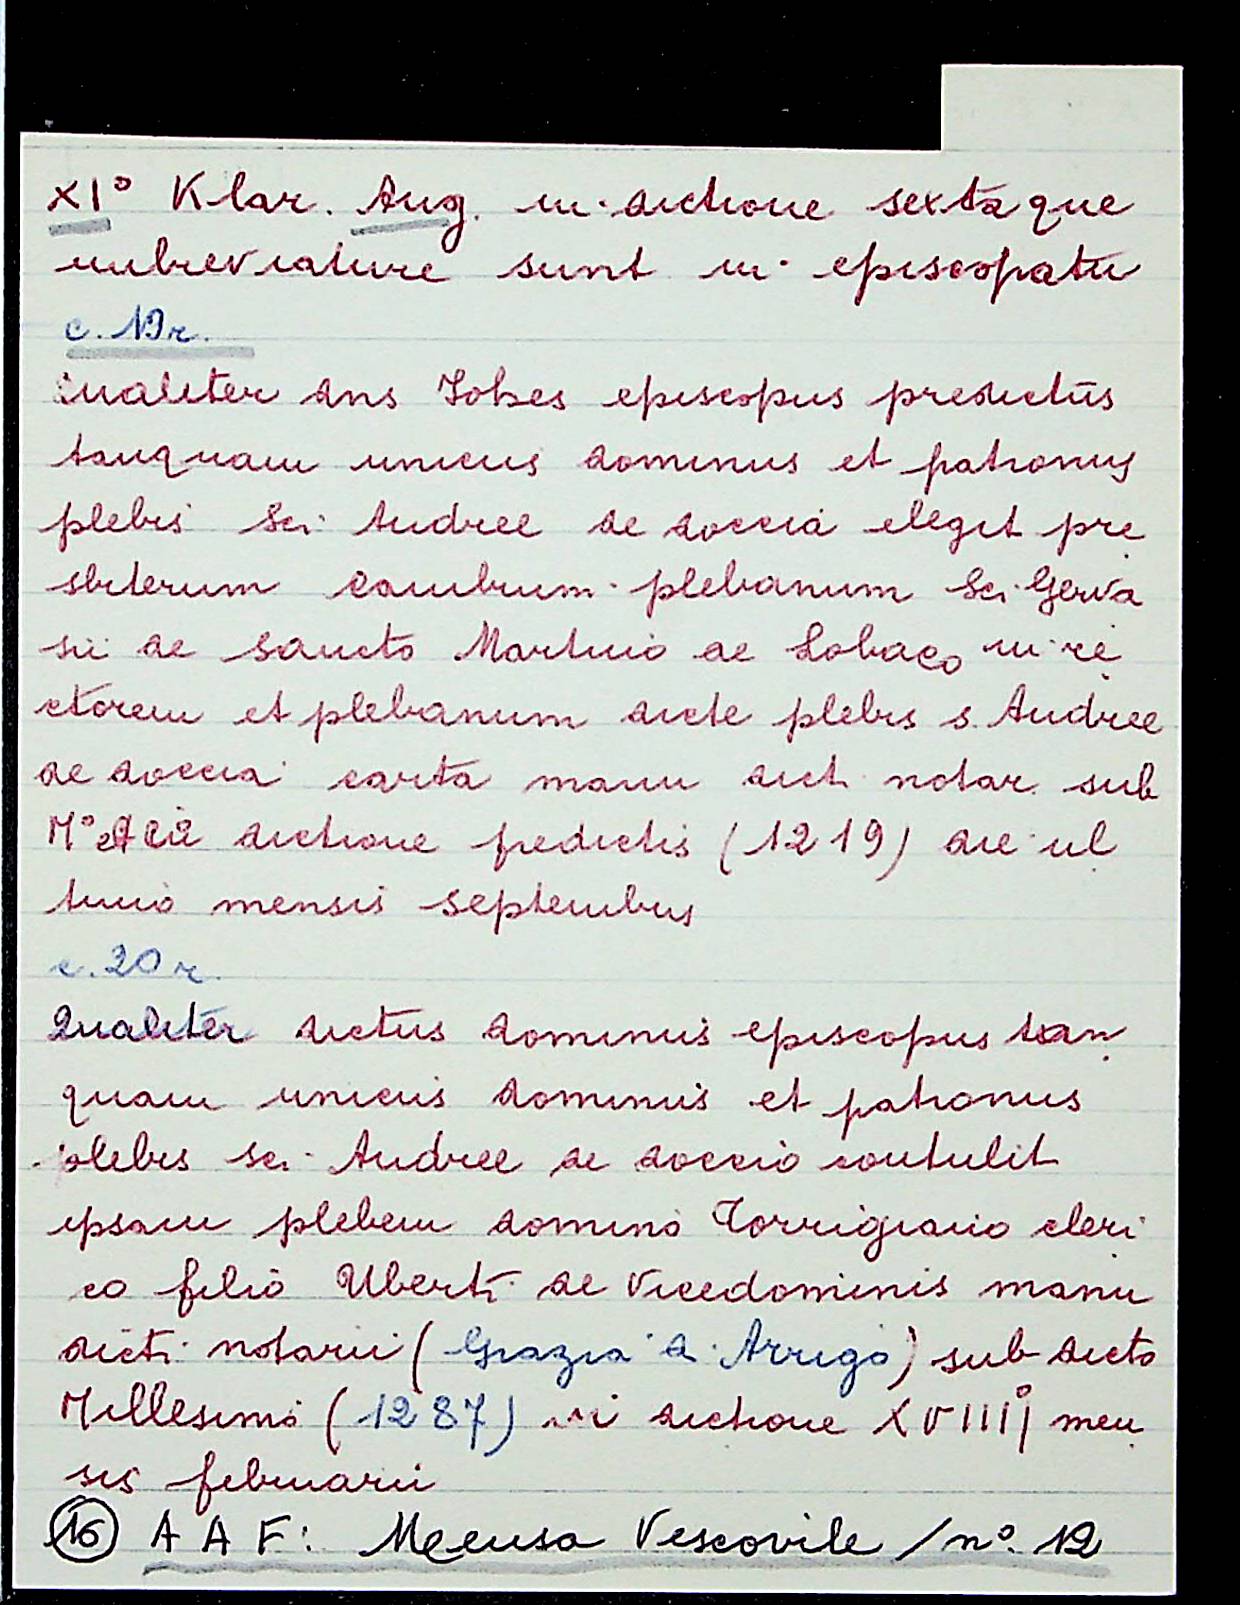 XI° Klar. Aug. in dictione sexta que
imbreviature sunt in episcopatu
c. 19r.
Qualiter dns Johes episcopus predictus
tanquam unicus dominus et patronus
plebis Sci Andree de doccia elegit pre
sbiterum Cambium plebanum Sci Gerva
sii de Sancto Martino de Lobaco in re
ctorem et plebanum dicte plebis S. Andree
de doccia carta manu dict. notar. sub
M° et dictione predictis (1219) die ul
timo mensis septembris
c. 20 r.
Qualiter dictus dominus episcopus tan
quam unicus dominus et patronus
plebis sci Andree de doccio contulit
ipsam plebem domino Torrigiano cleri
co filio Uberti de Vicedominis manu
dicti notarii (Grazia d Arrigo) sub dicto
Millesimo (1287) in dictione XVIIIJ° men
sis februarii
16 A A F: Mensa Vescovile / n° 12